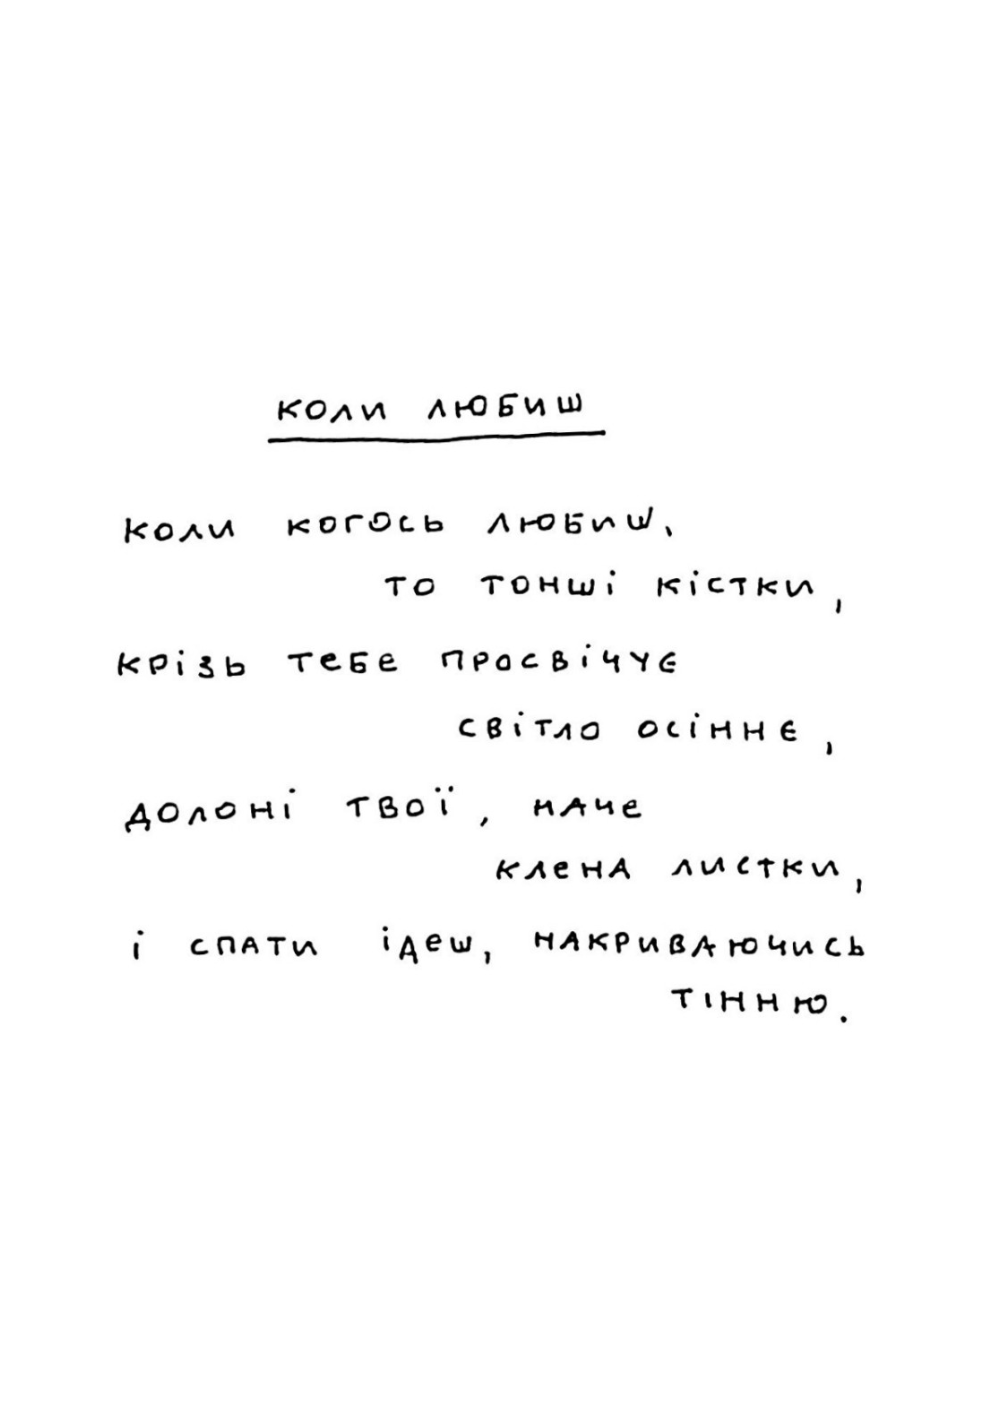 коли любиш
коли когось любиш,
то тонші кістки,
крізь тебе просвічує
світло осіннє,
долоні твої, наче
клена листки,
і спати ідеш, накриваючись
тінню.